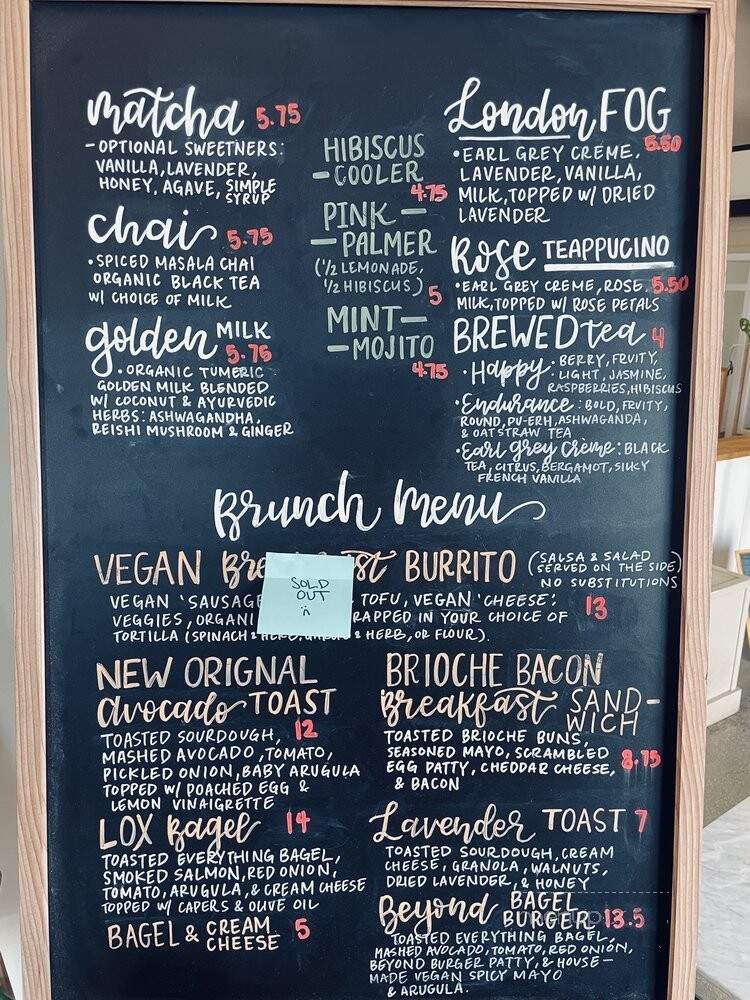 matcha 5.75
- OPTIONAL SWEETNERS:
VANILLA, LAVENDER,
HONEY, AGAVE, SIMPLE
SYRUP
chai 5.75
• SPICED MASALA CHAI
ORGANIC BLACK TEA
W/ CHOICE OF MILK
golden MILK
5.75
• ORGANIC TUMERIC
GOLDEN MILK BLENDED
W/ COCONUT & AYURVEDIC
HERBS: ASHWAGANDHA,
REISHI MUSHROOM & GINGER
HIBISCUS
- COOLER
4.75
PINK -
- PALMER
(1/2 LEMONADE,
1/2 HIBISCUS) 5
MINT -
- MOJITO
4.75
London FOG
5.50
• EARL GREY CREME,
LAVENDER, VANILLA,
MILK, TOPPED W/ DRIED
LAVENDER
Rose TEAPPUCINO
• EARL GREY CREME, ROSE, 5.50
MILK, TOPPED W/ ROSE PETALS
BREWED tea 4
• Happy: BERRY, FRUITY,
LIGHT, JASMINE,
RASPBERRIES, HIBISCUS
• Endurance: BOLD, FRUITY,
ROUND, PU-ERH, ASHWAGANDA,
& OAT STRAW TEA
• Earl grey Crème: BLACK
TEA, CITRUS, BERGAMOT, SILKY
FRENCH VANILLA
Brunch Menu
VEGAN Bre st BURRITO (SALSA & SALAD
SERVED ON THE SIDE)
NO SUBSTITUTIONS
SOLD
OUT
:(
VEGAN 'SAUSAGE TOFU, VEGAN 'CHEESE', 13
VEGGIES, ORGANI RAPPED IN YOUR CHOICE OF
TORTILLA (SPINACH & HERB, & HERB, OR FLOUR).
NEW ORIGNAL
Avocado TOAST
TOASTED SOURDOUGH, 12
MASHED AVOCADO, TOMATO,
PICKLED ONION, BABY ARUGULA
TOPPED W/ POACHED EGG &
LEMON VINAIGRETTE
LOX Bagel 14
TOASTED EVERYTHING BAGEL,
SMOKED SALMON, RED ONION,
TOMATO, ARUGULA, & CREAM CHEESE
TOPPED W/ CAPERS & OLIVE OIL
BAGEL & CREAM
CHEESE 5
BRIOCHE BACON
Breakfast SAND-
WICH
TOASTED BRIOCHE BUNS,
SEASONED MAYO, SCRAMBLED
EGG PATTY, CHEDDAR CHEESE, 8.75
& BACON
Lavender TOAST 7
TOASTED SOURDOUGH, CREAM
CHEESE, GRANOLA, WALNUTS,
DRIED LAVENDER, & HONEY
Beyond BAGEL
BURGER 13.5
TOASTED EVERYTHING BAGEL,
MASHED AVOCADO, TOMATO, RED ONION,
BEYOND BURGER PATTY, & HOUSE-
MADE VEGAN SPICY MAYO
& ARUGULA.